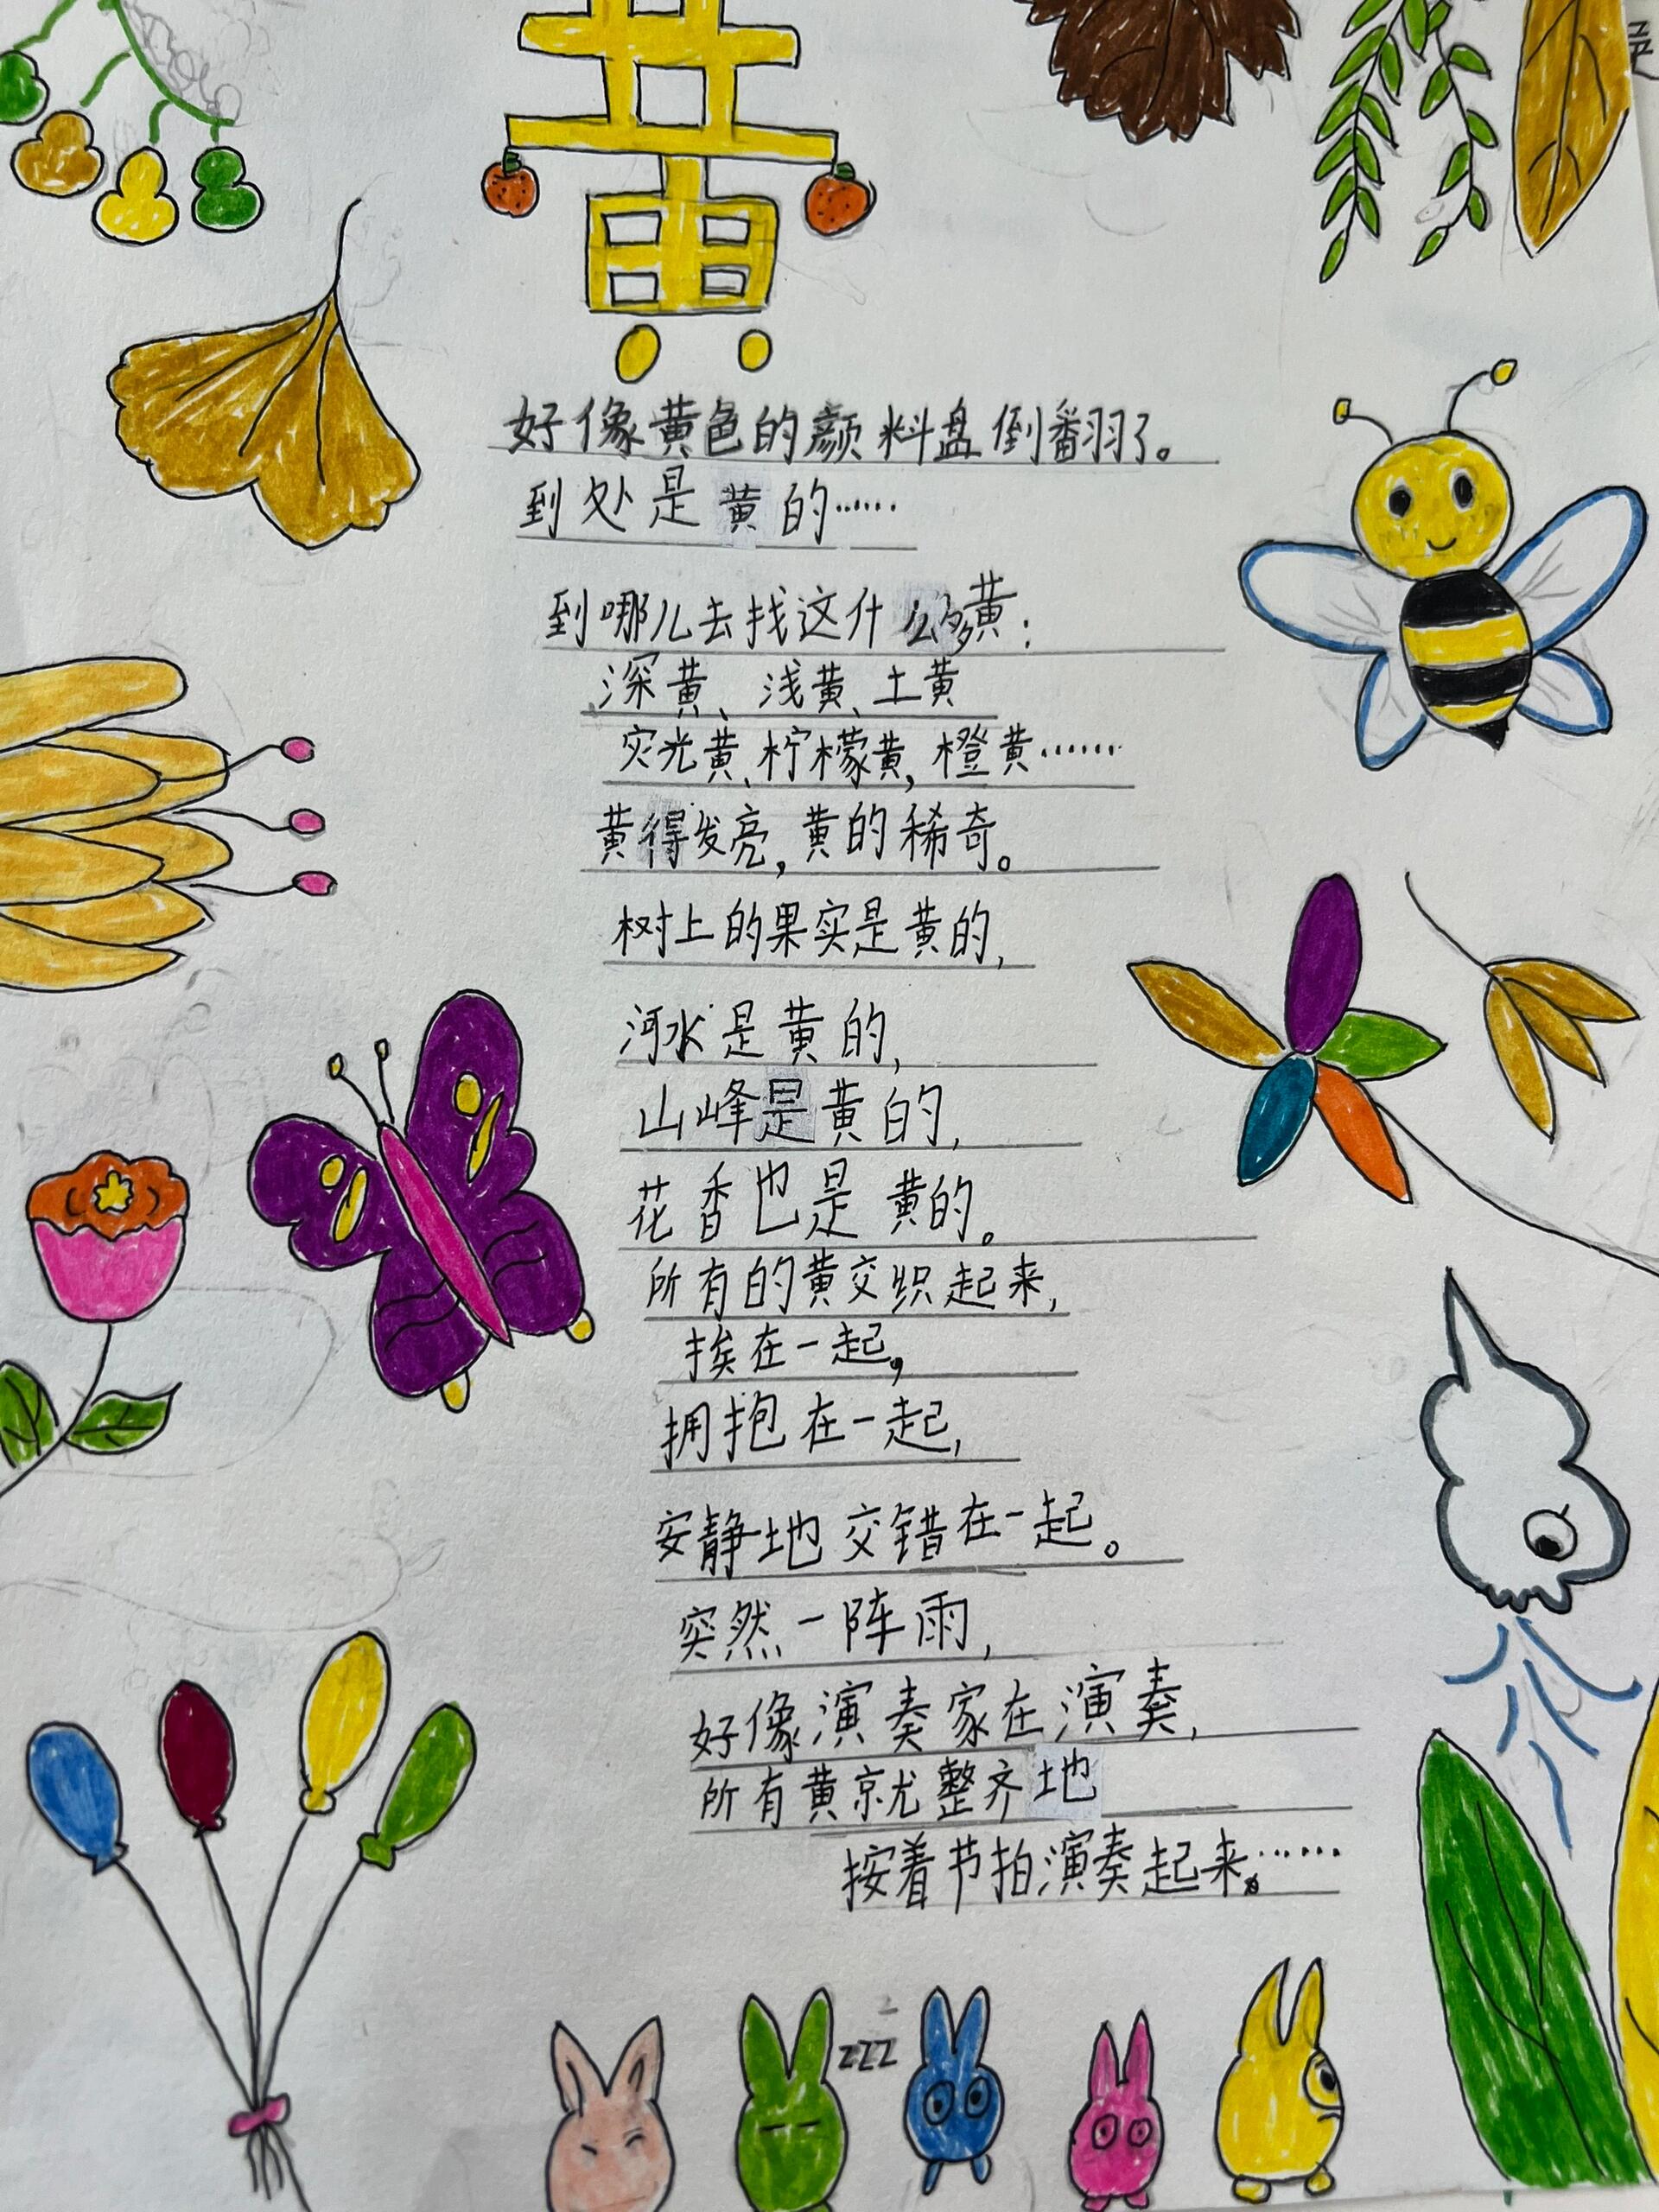 黄
好像黄色的颜料盘倒翻了。
到处是黄的……
到哪儿去找这什么多黄:
深黄、浅黄、土黄
荧光黄、柠檬黄,橙黄……
黄得发亮,黄的稀奇。
树上的果实是黄的,
河水是黄的,
山峰是黄的,
花香也是黄的。
所有的黄交织起来,
挨在一起,
拥抱在一起,
安静地交错在一起。
突然一阵雨,
好像演奏家在演奏,
所有黄就整齐地
按着节拍演奏起来。……
zzz